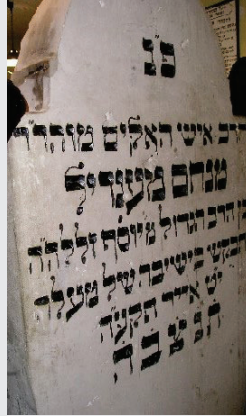 פ"נ
הרב איש האלקים מוהר"ר
מנחם מענדיל
בן הרב הגדול מ יוסף זללה"ה
נתבקש בישיבה של מעלה
יט אייר תקע"ה
ת נ צ ב ה